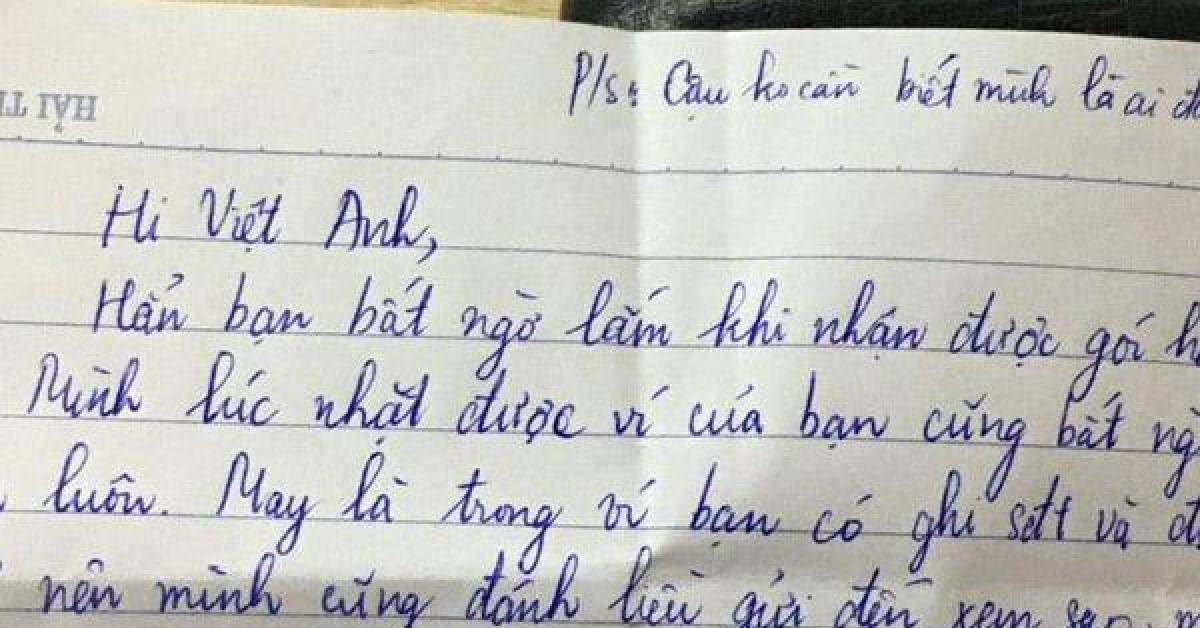 P/s: Cậu ko cần biết mình là ai
HẢI
Hi Việt Anh,
Hẳn bạn bất ngờ lắm khi nhận được gói
Mình lúc nhặt được ví của bạn cũng bất
luôn. May là trong ví bạn có ghi sđt và
nên mình cũng đánh liều gửi đến xem sao